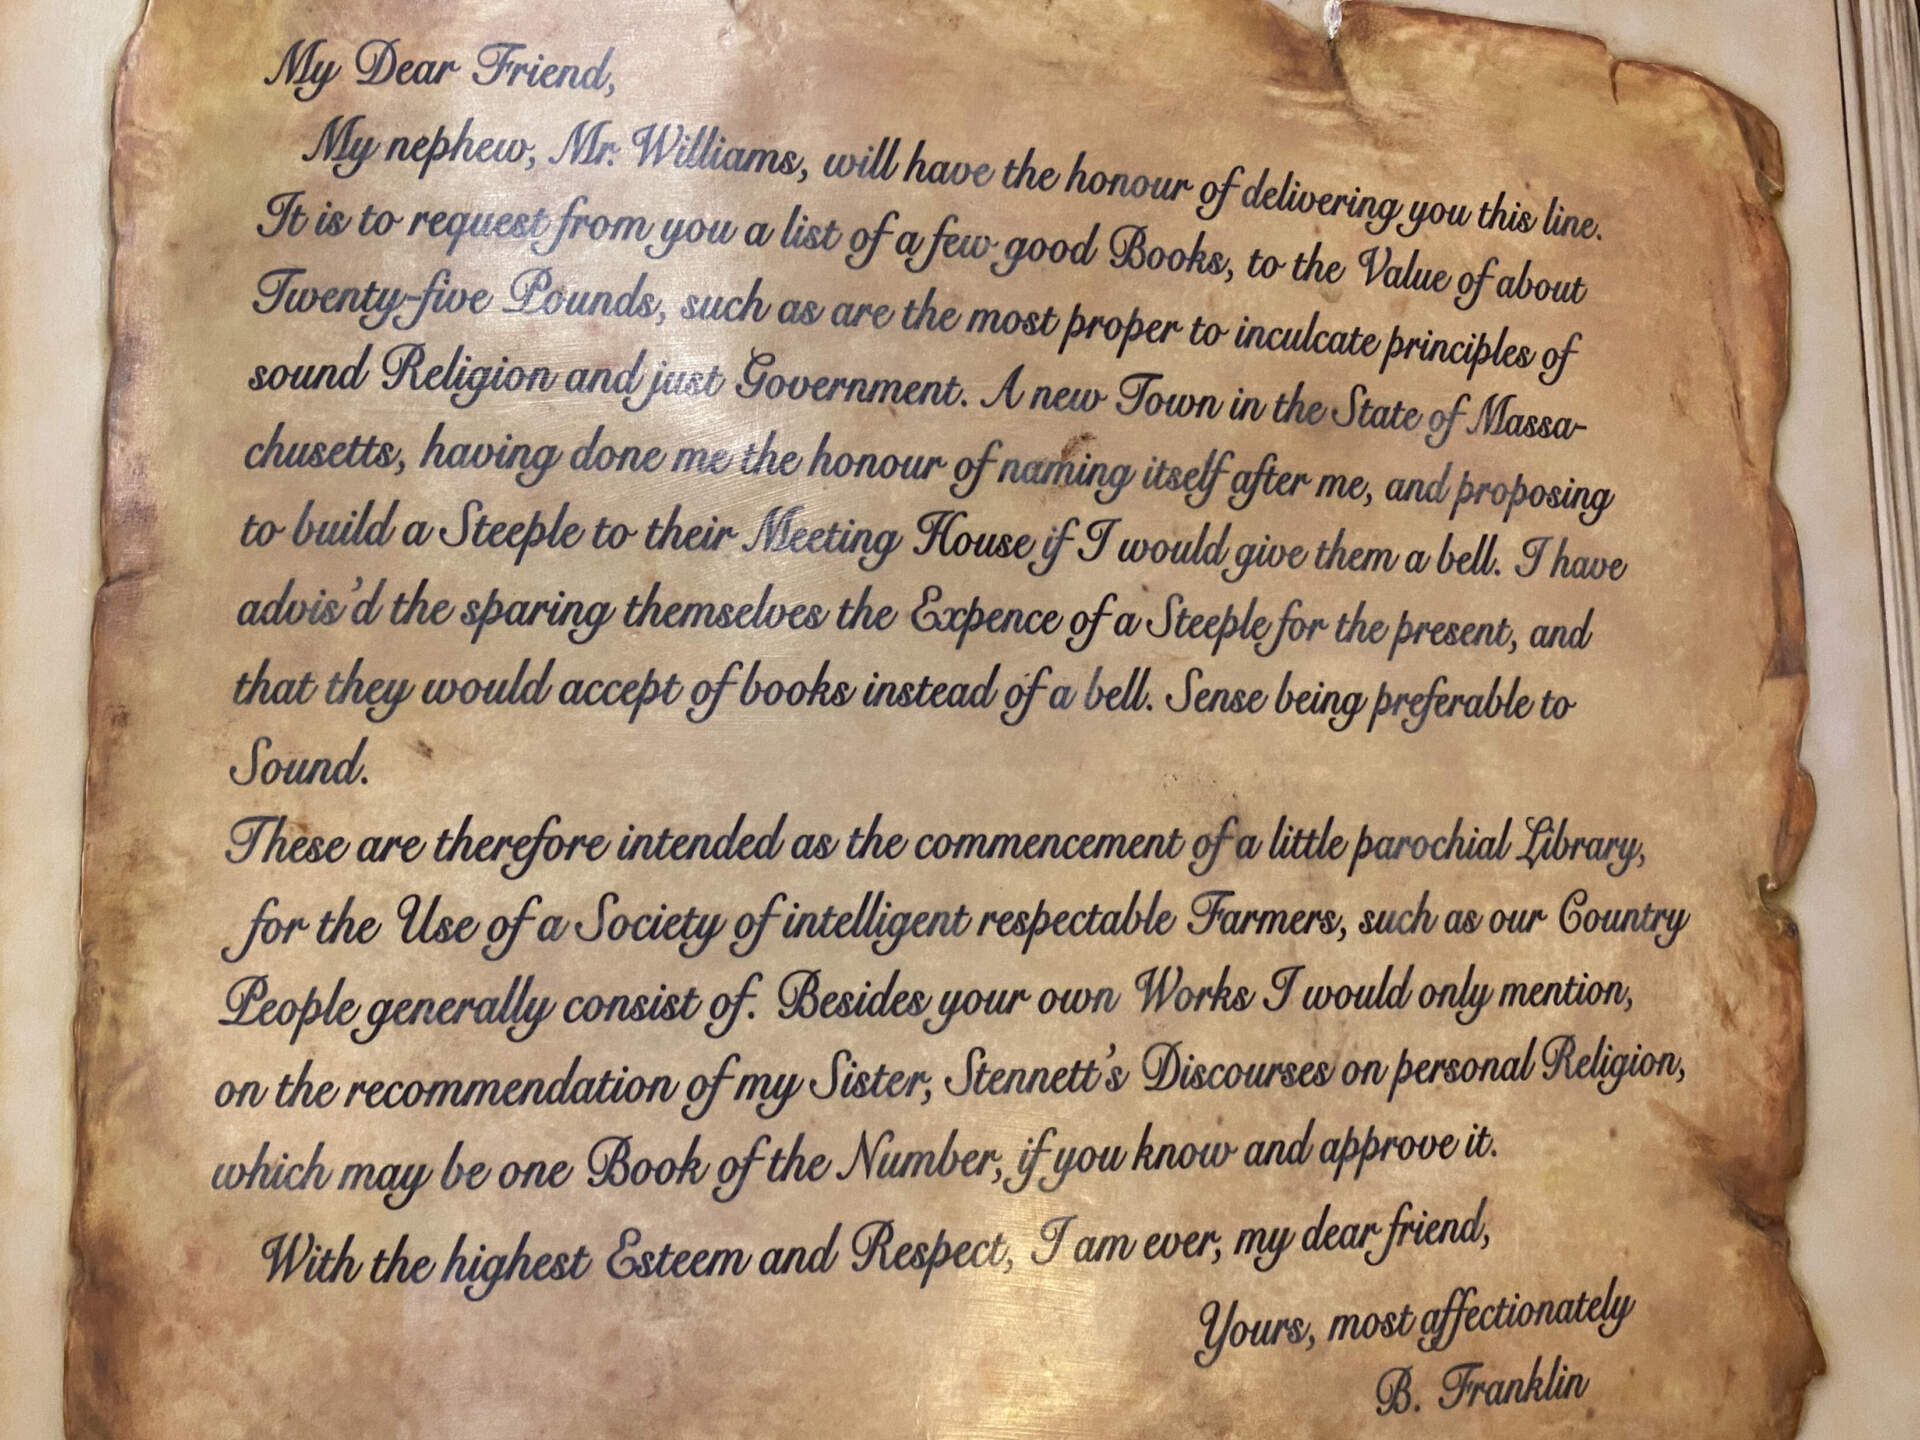 My Dear Friend,
My nephew, Mr. Williams, will have the honour of delivering you this line.
It is to request from you a list of a few good Books, to the Value of about
Twenty-five Pounds, such as are the most proper to inculcate principles of
sound Religion and just Government. A new Town in the State of Massa-
chusetts, having done me the honour of naming itself after me, and proposing
to build a Steeple to their Meeting House if I would give them a bell. I have
advis'd the sparing themselves the Expence of a Steeple for the present, and
that they would accept of books instead of a bell. Sense being preferable to
Sound.
These are therefore intended as the commencement of a little parochial Library,
for the Use of a Society of intelligent respectable Farmers, such as our Country
People generally consist of. Besides your own Works I would only mention,
on the recommendation of my Sister, Stennett's Discourses on personal Religion,
which may be one Book of the Number, if you know and approve it.
With the highest Esteem and Respect, I am ever, my dear friend,
Yours, most affectionately
B. Franklin